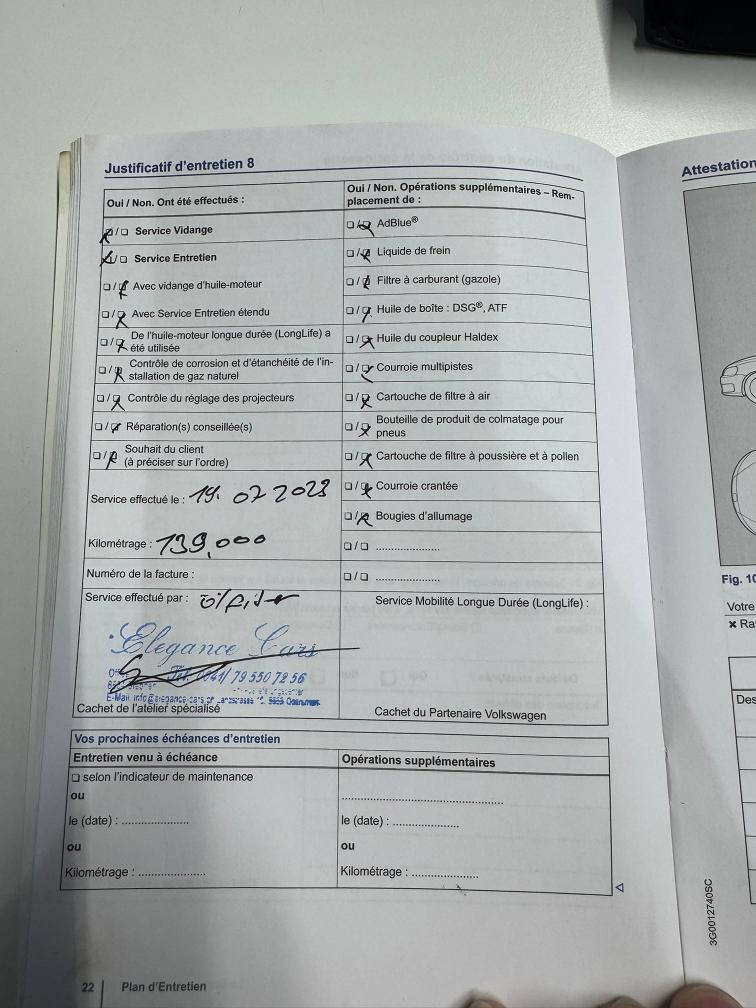 Justificatif d'entretien 8
Attestation
Oui / Non. Ont été effectués :
Oui / Non. Opérations supplémentaires – Rem-
placement de :
❑/❑ Service Vidange
❑/❑ AdBlue®
❑/❑ Service Entretien
❑/❑ Liquide de frein
❑/❑ Avec vidange d'huile-moteur
❑/❑ Filtre à carburant (gazole)
❑/❑ Avec Service Entretien étendu
❑/❑ Huile de boîte : DSG®, ATF
❑/❑ De l'huile-moteur longue durée (LongLife) a
été utilisée
❑/❑ Huile du coupleur Haldex
❑/❑ Contrôle de corrosion et d'étanchéité de l'in-
stallation de gaz naturel
❑/❑ Courroie multipistes
❑/❑ Contrôle du réglage des projecteurs
❑/❑ Cartouche de filtre à air
❑/❑ Réparation(s) conseillée(s)
❑/❑ Bouteille de produit de colmatage pour
pneus
❑/❑ Souhait du client
(à préciser sur l'ordre)
❑/❑ Cartouche de filtre à poussière et à pollen
❑/❑ Courroie crantée
Service effectué le : 19. 07 2023
❑/❑ Bougies d'allumage
Kilométrage : 139,000
❑/❑ ......................
❑/❑ ......................
Numéro de la facture :
Service effectué par :
Service Mobilité Longue Durée (LongLife) :
Elegance Cars
Tel. 0041/ 79 550 72 56
E-Mail. info@elegance-cars.ch
Cachet de l'atelier spécialisé
Cachet du Partenaire Volkswagen
Vos prochaines échéances d'entretien
Entretien venu à échéance
Opérations supplémentaires
❑ selon l'indicateur de maintenance
ou
......................................................
le (date) : ......................
le (date) : ......................
ou
ou
Kilométrage : ......................
Kilométrage : ......................
22 Plan d'Entretien
Fig. 10
Votre
✖ Ra
Des
3G0012740SC